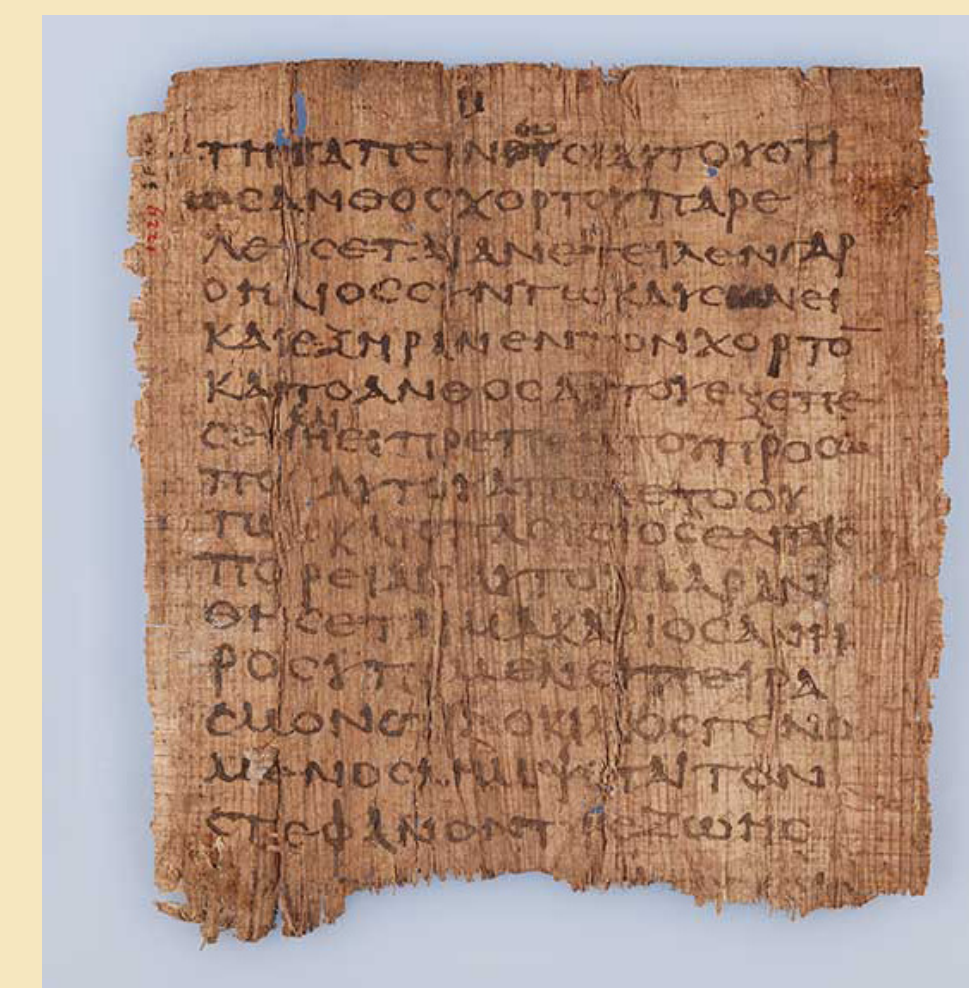 ΤΗΤΑΠΕΙΝΟΥϹΙΑΥΤΟΥΟΤΙ
ΩϹΑΝΘΟϹΧΟΡΤΟΥΠΑΡΕ
ΛΕΥϹΕΤΑΙΑΝΕΤΕΙΛΕΝΓΑΡ
ΟΗΛΙΟϹϹΥΝΤΩΚΑΥϹΩΝΕΙ
ΚΑΙΕΞΗΡΑΝΕΝΤΟΝΧΟΡΤΟ̅
ΚΑΙΤΟΑΝΘΟϹΑΥΤΟΥΕΞΕΠΕ
ϹΕΚΑΙΗΕΥΠΡΕΠΕΙΑΤΟΥΠΡΟϹΩ
ΠΟΥΑΥΤΟΥΑΠΩΛΕΤΟΟΥ
ΤΩϹΚΑΙΟΠΛΟΥϹΙΟϹΕΝΤΑΙϹ
ΠΟΡΕΙΑΙϹΑΥΤΟΥΜΑΡΑΝ
ΘΗϹΕΤΑΙΜΑΚΑΡΙΟϹΑΝΗ
ΡΟϹΥΠΟΜΕΝΕΙΠΕΙΡΑ
ϹΜΟΝΟΤΙΔΟΚΙΜΟϹΓΕΝΟ
ΜΕΝΟϹΛΗΜΨΕΤΑΙΤΟΝ
ϹΤΕΦΑΝΟΝΤΗϹΖΩΗϹ